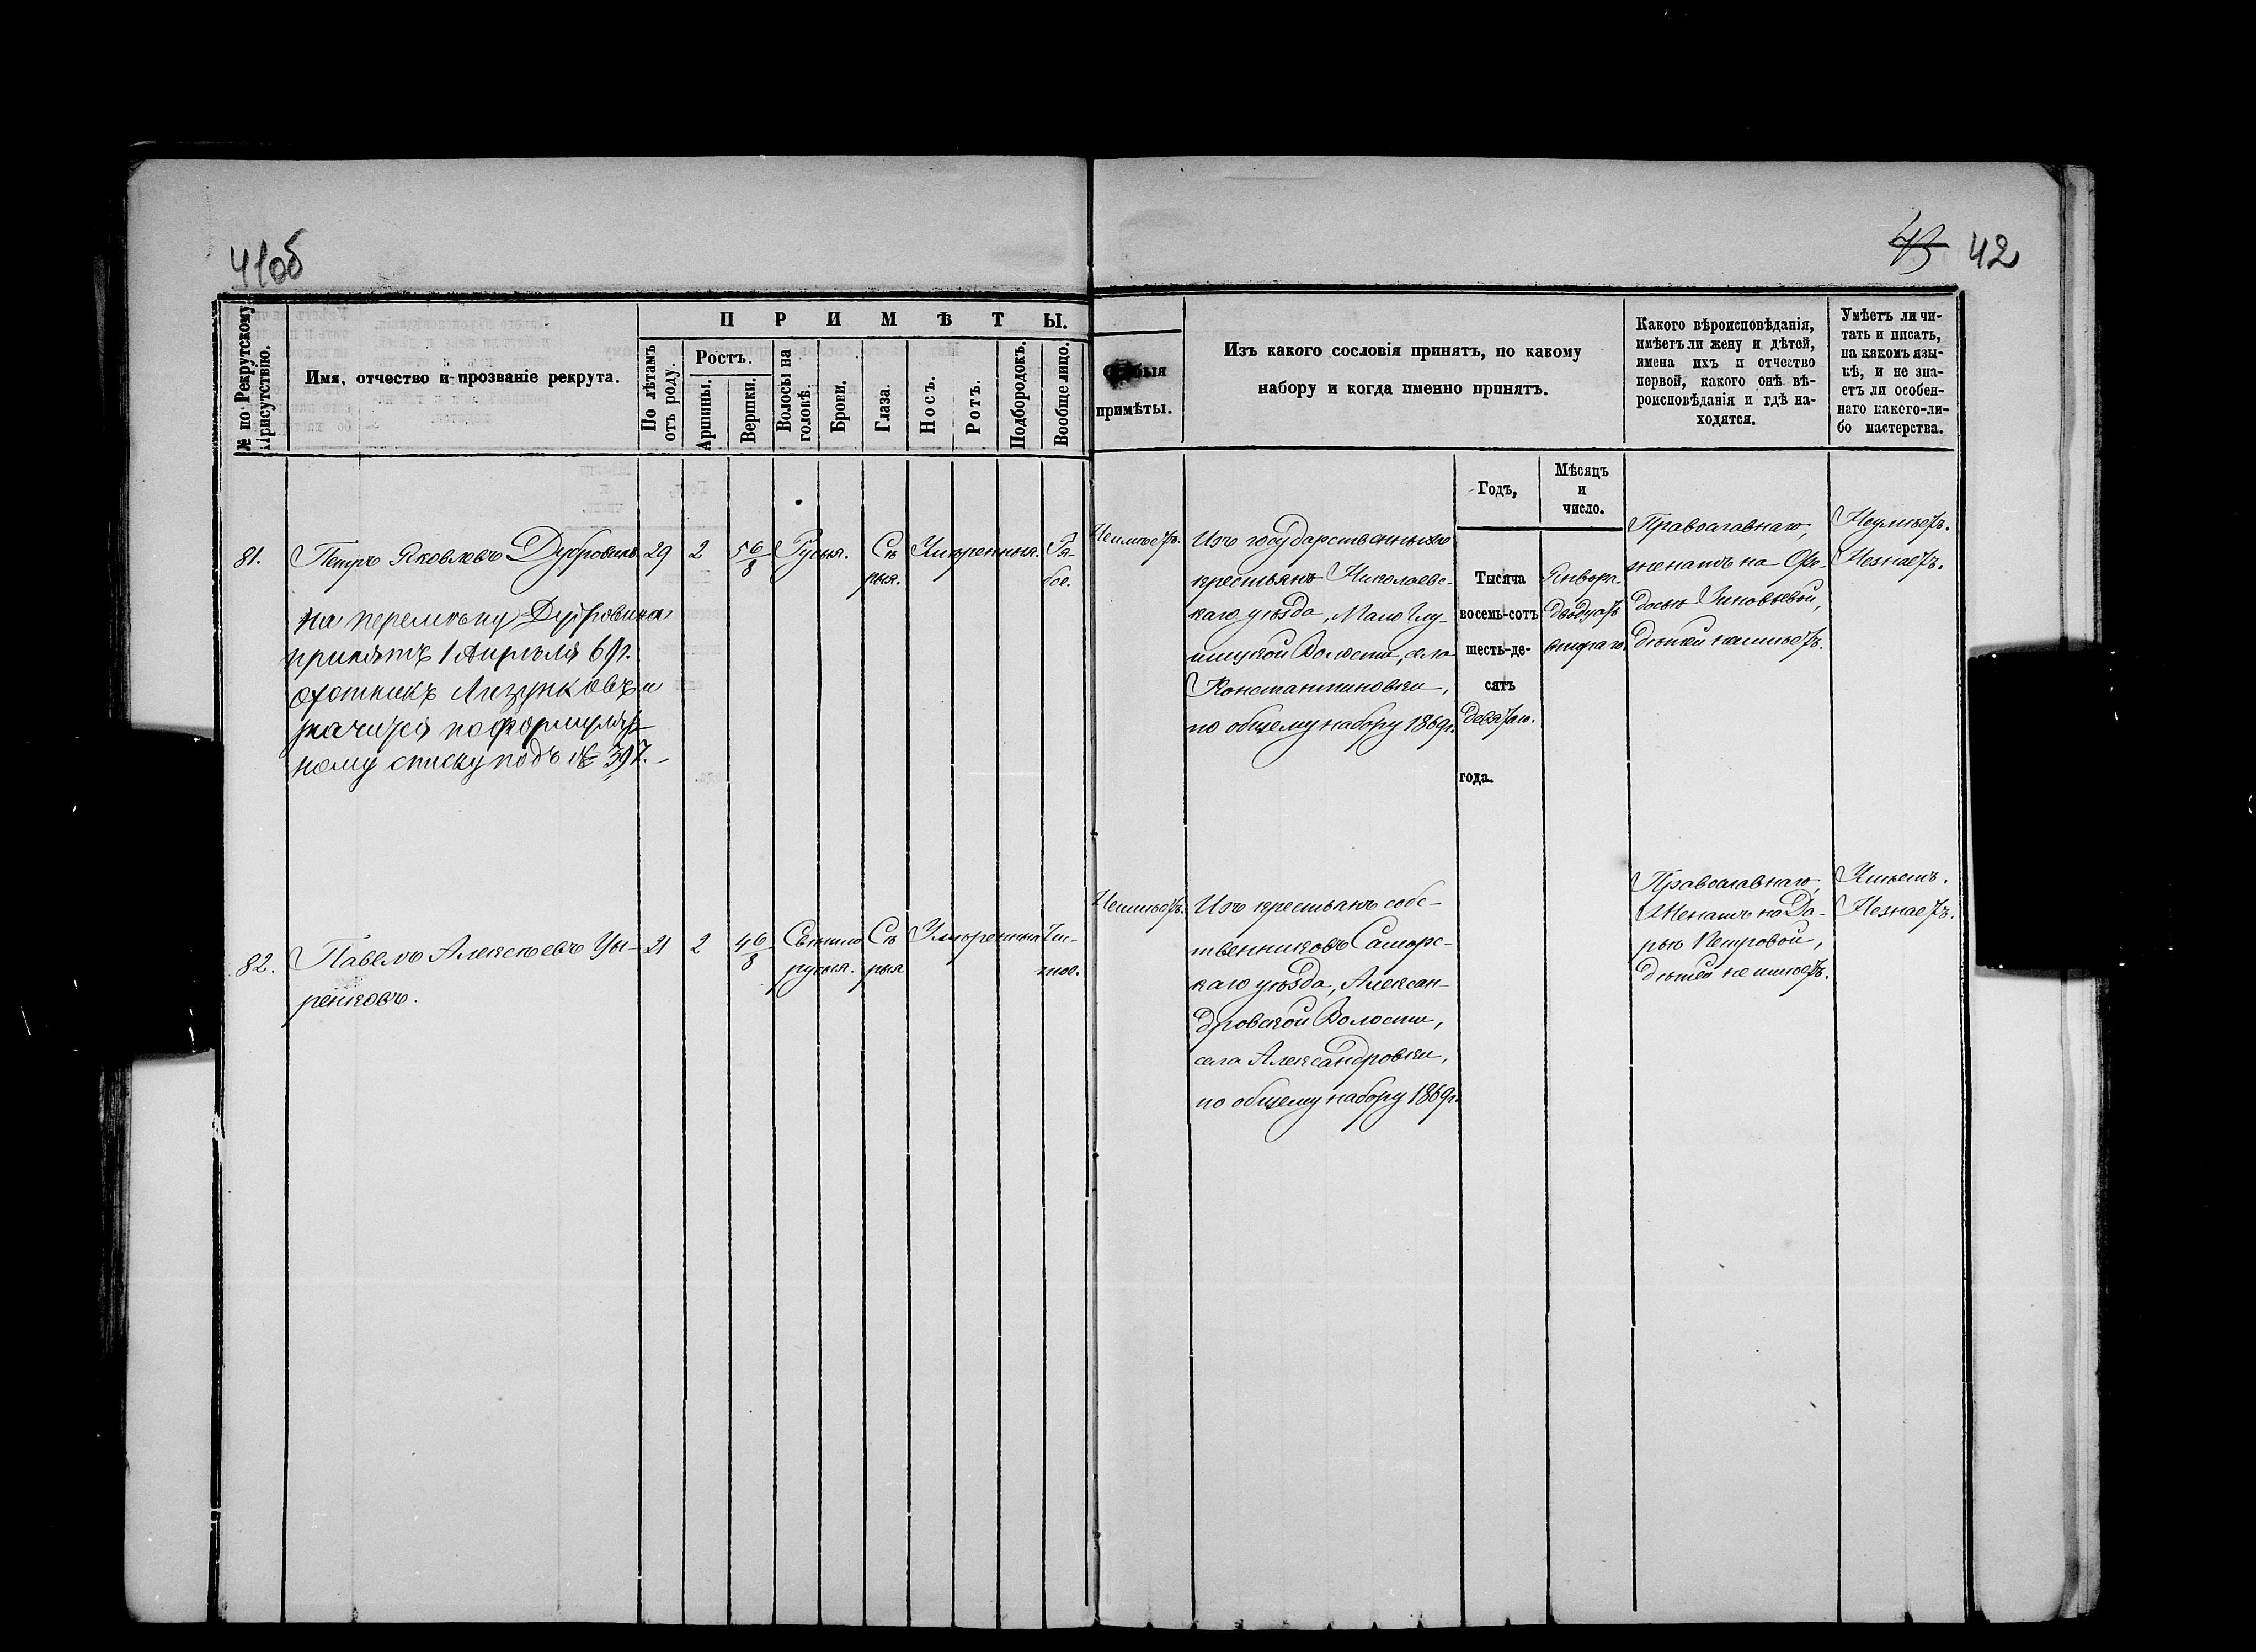 41об
43 42
№ по Рекрутскому Присутствію.
Имя, отчество и прозваніе рекрута.
ПРИМѢТЫ.
По лѣтамъ отъ роду.
Ростъ.
Аршины.
Вершки.
Волосы на головѣ.
Брови.
Глаза.
Носъ.
Ротъ.
Подбородокъ.
Вообще лицо.
примѣты.
Изъ какого сословія принятъ, по какому
набору и когда именно принятъ.
Какого вѣроисповѣданія,
имѣетъ ли жену и дѣтей,
имена ихъ и отчество
первой, какого онѣ вѣ-
роисповѣданія и гдѣ на-
ходятся.
Умѣетъ ли чи-
тать и писать,
на какомъ язы-
кѣ, и не зна-
етъ ли особен-
наго какого-ли-
бо мастерства.
Годъ,
Мѣсяцъ
и
число.
81. Петръ Яковлевъ Дубровинъ 29 2 5 6/8 Русыя. Сѣ Умѣренныя. Ря-
рыя. бое.
на перемѣну Дубровина
принятъ 1 Апрѣля 69 г.
охотникъ Лизунковъ и
значится по формуляр
ному списку подъ № 397.
Неимѣетъ.
Изъ государственныхъ
крестьянъ Николаевс-
каго уѣзда, Мало Глу-
шицкой Волости, села
Константиновки,
по общему набору 1869 г.
Тысяча
восемь-сотъ
шесть-де-
сятъ
девятаго.
года.
Января
двадцать
втораго
Православнаго,
женатъ на Фе-
досьѣ Зиновьевой,
дѣтей неимѣетъ.
Неумѣетъ.
Незнаетъ.
82. Павелъ Алексѣевъ Цы- 21 2 4 6/8 Свѣтло Сѣ Умѣренныя Чи-
ренковъ. русыя. рыя стое.
Неимѣетъ.
Изъ крестьянъ собс-
твенниковъ Самарс-
каго уѣзда, Алексан-
дровской Волости,
села Александровки,
по общему набору 1869 г.
Православнаго,
Женатъ на Да-
рьѣ Петровой,
дѣтей не имѣетъ.
Умѣетъ.
Незнаетъ.